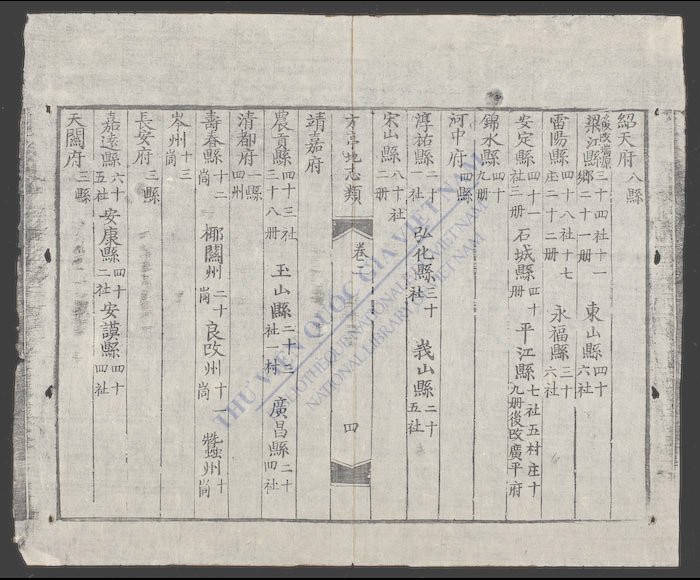 紹天府八縣
梁江縣三十四社十一鄉二十一册 東山縣四十六社
雷陽縣四十八社十七庄二十二册 永福縣三十六社
安定縣四十一社三册 石城縣四十册 平江縣七社五村庄十九册後改廣平府
錦水縣四十九册
河中府四縣
淳祐縣二十一社 弘化縣三十社 峩山縣二十五社
宋山縣八十社二册
方亭地志類 卷二 四
靖嘉府
農貢縣四十三社三十八册 玉山縣二十三社一村 廣昌縣二十四社
清都府一縣四州
壽春縣十二尚 椰關州二十尚 良改州十一尚 蠶州十尚
岑州十三尚
長安府三縣
嘉遠縣六十五社 安康縣四十二社 安謨縣四十四社
天關府三縣
THƯ VIỆN QUỐC GIA VIỆT NAM
BIBLIOTHEQUE NATIONALE DU VIETNAM
NATIONAL LIBRARY OF VIETNAM